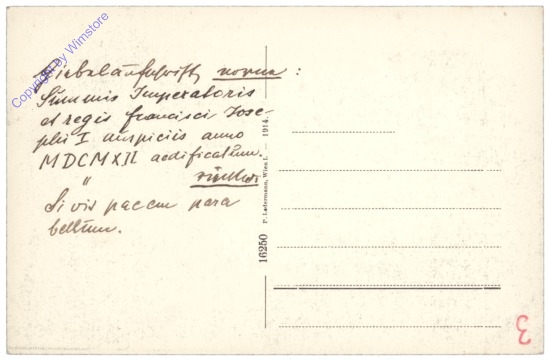 Giebelaufschrift vorne :
Summis Imperatoris
et regis Francisci Jose-
phi I auspiciis anno
MDCMXII aedificatum.
" rückw.
Si vis pacem para
bellum.
Copyright by Wimstore
16250
P. Ledermann, Wien I. — 1914.
3